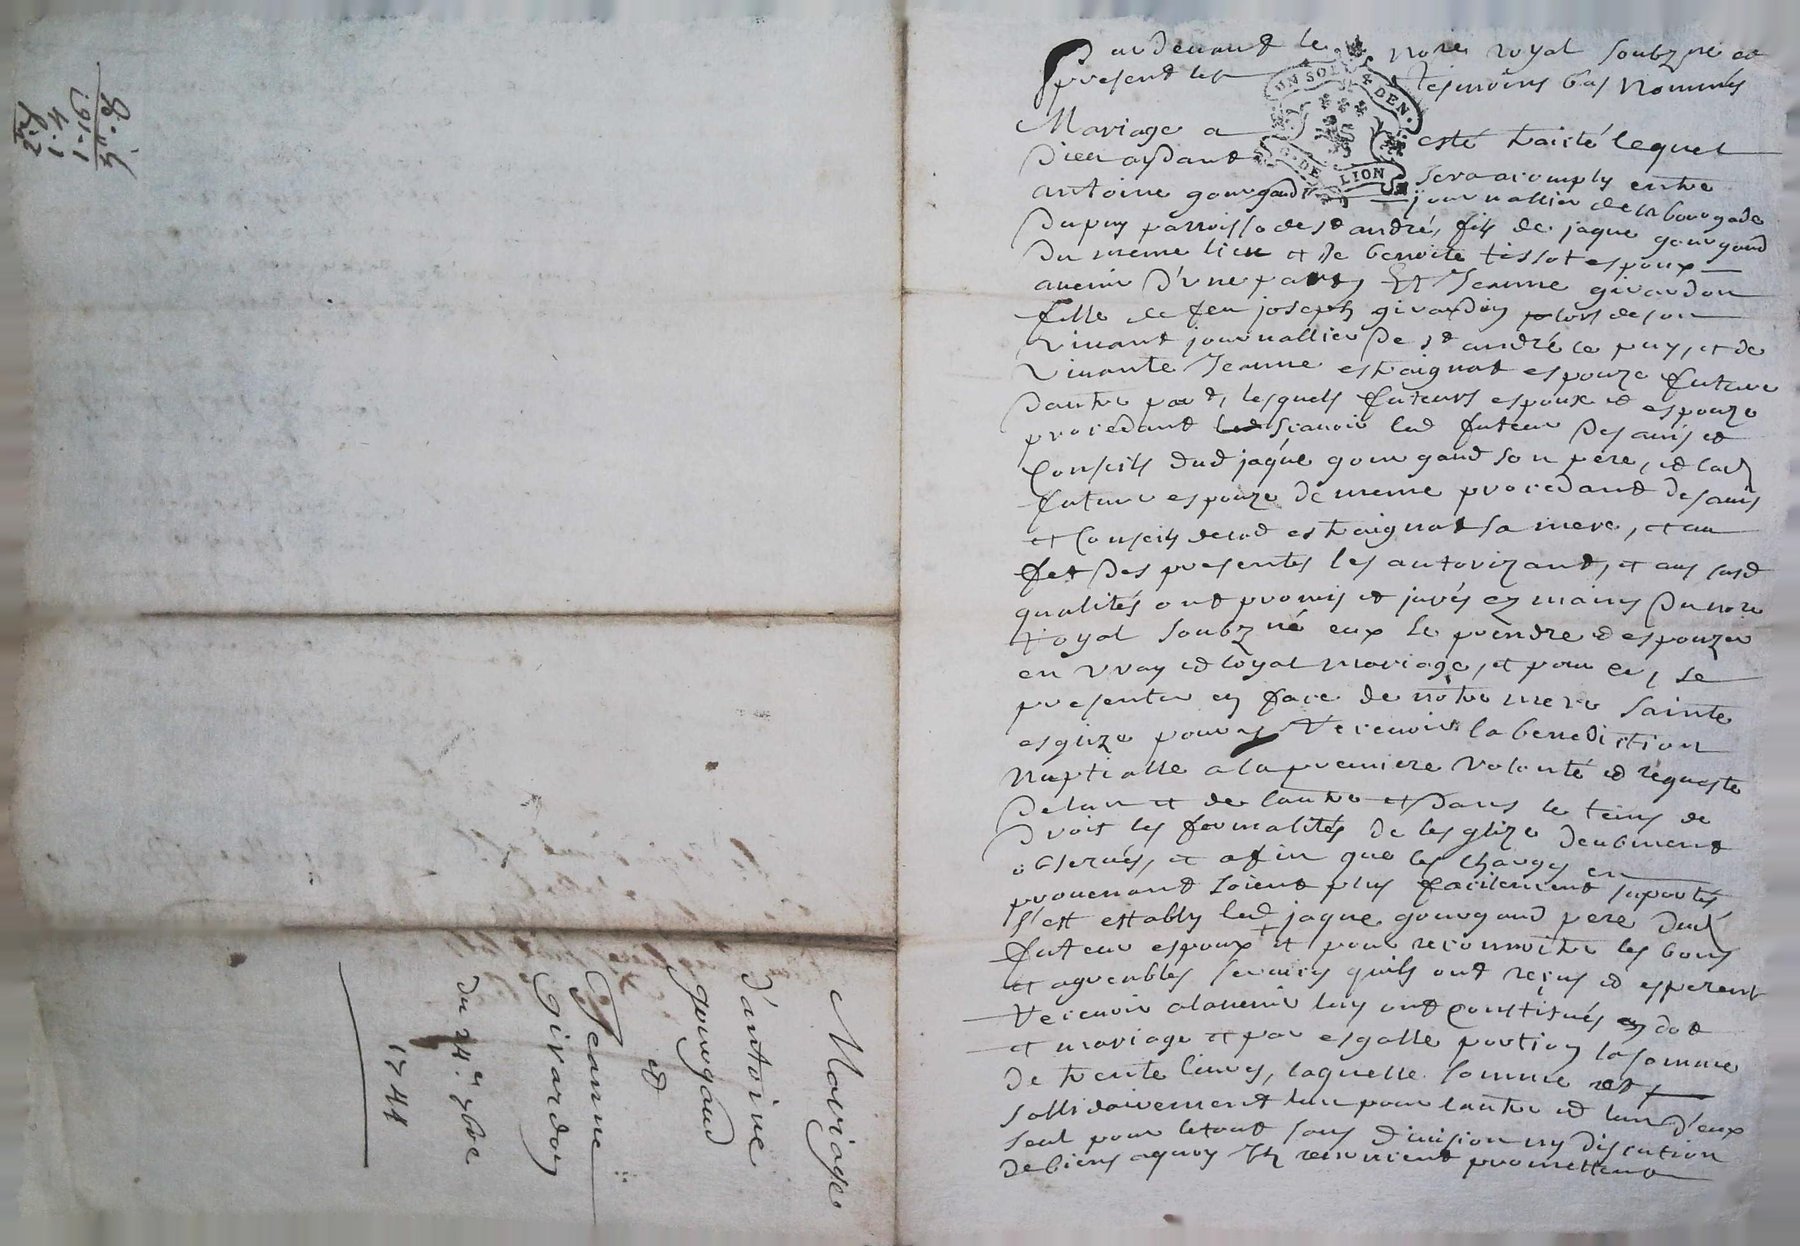 Mariage
d'antoine
gourgaud
et
Jeanne
Girardon
du 24.e 9bre
1741
UN SOL 4 DEN.
G. DE LION
Pardevant le nore royal soubzné et
present les tesmoins bas nommés
Mariage a esté traité lequel
dieu aydant sera acomply entre
antoine gourgaud journallier de la bourgade
dupuy parroisse de st andré, fils de jaque gourgaud
du meme lieu et de benoite tissot espoux
avenir d'une part, Et Jeanne girardon
fille de feu joseph girardon lors de son
vivant journallier de st andré le puy, et de
vivante Jeanne estraignat espouze future
dautre part, lesquels futeurs espoux et espouze
procedant scavoir led futeur des avis et
Conseils dud jaque gourgaud son pere, et lad
future espouze de meme procedant des avis
et Conseils de lad estraignat sa mere, et au
fet des presentes les autorizant, et aus susd
qualités ont promis et jurés ez mains du nore
Royal soubzné eux se prendre et espouzer
en vray et loyal mariage, et pour ce, se
presenter en face de notre mere sainte
esglize pour y recevoir la benediction
nuptialle a la premiere volonté et requeste
de lun et de lautre et dans le tems de
droit les formalités de lesglize deubment
observés, et afin que les charges en
provenant soient plus facilement suportés
s'est estably led jaque gourgaud pere dud
futeur espoux + et pour reconnoitre les bons
et agreables services quils ont reçus et esperent
recevoir alavenir luy ont constitués en dot
et mariage et par esgalle portion la somme
de trente livres, laquelle somme
sollidairement lun pour lautre et lun d'eux
seul pour le tout sans division ny discution
de biens aquoy ils renoncent promettent